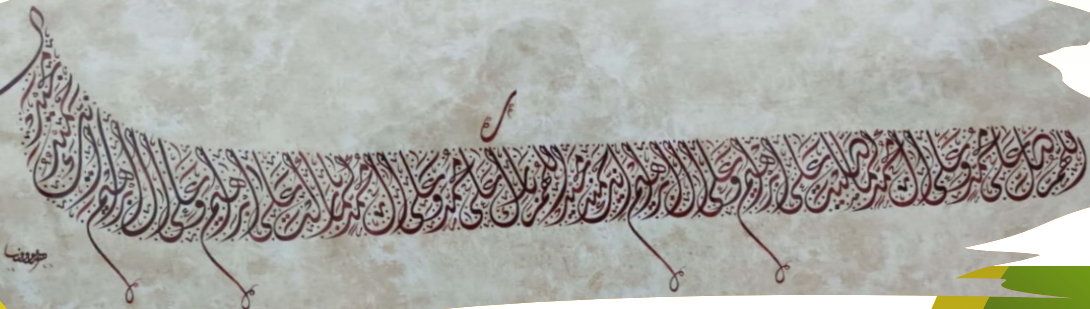 اللهم صل على محمد وعلى آل محمد كما صليت على إبراهيم وعلى آل إبراهيم إنك حميد مجيد اللهم بارك على محمد وعلى آل محمد كما باركت على إبراهيم وعلى آل إبراهيم إنك حميد مجيد